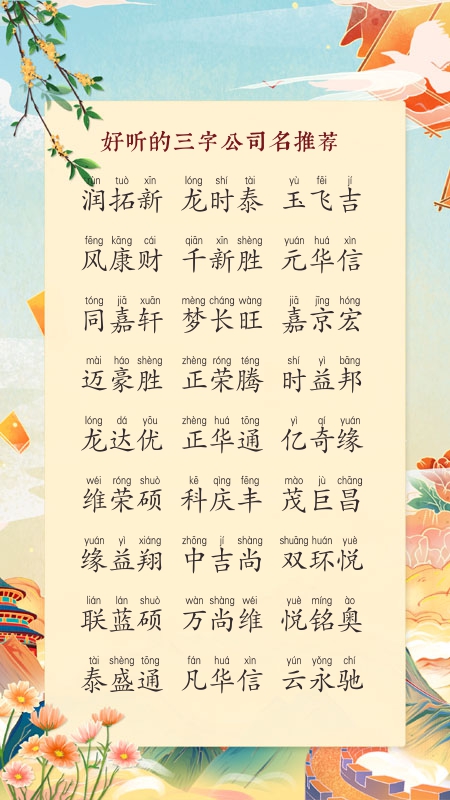 好听的三字公司名推荐
rùn tuò xīn lóng shí tài yù fēi jí
润拓新 龙时泰 玉飞吉
fēng kāng cái qiān xīn shèng yuán huá xìn
风康财 千新胜 元华信
tóng jiā xuān mèng cháng wàng jiā jīng hóng
同嘉轩 梦长旺 嘉京宏
mài háo shèng zhèng róng téng shí yì bāng
迈豪胜 正荣腾 时益邦
lóng dá yōu zhèng huá tōng yì qí yuán
龙达优 正华通 亿奇缘
wéi róng shuò kē qìng fēng mào jù chāng
维荣硕 科庆丰 茂巨昌
yuán yì xiáng zhōng jí shàng shuāng huán yuè
缘益翔 中吉尚 双环悦
lián lán shuò wàn shàng wéi yuè míng ào
联蓝硕 万尚维 悦铭奥
tài shèng tōng fán huá xìn yún yǒng chí
泰盛通 凡华信 云永驰